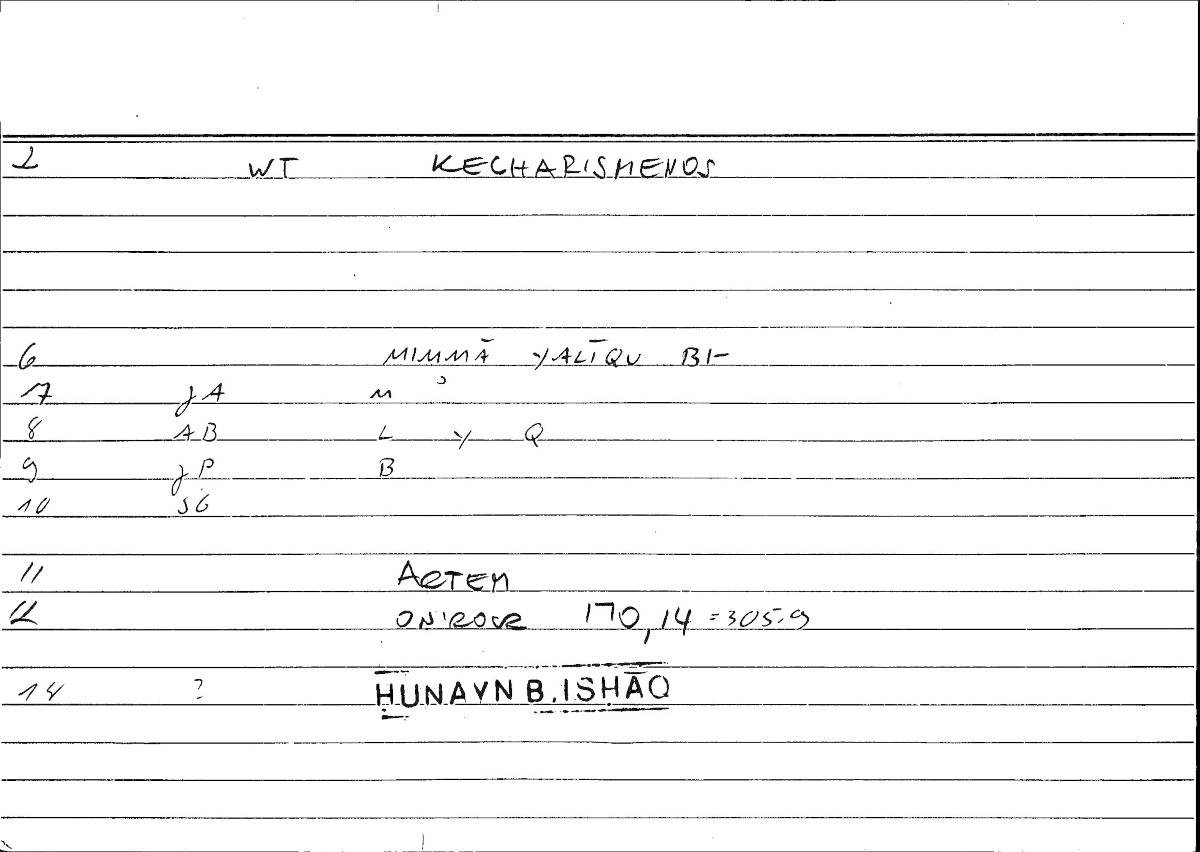 2 WT KECHARISMENOS
6 MIMMĀ YALĪQU BI-
7 JA M
8 AB L Y Q
9 JP B
10 SG
11 ARTEM
12 ONIROCR 170,14 =305.9
14 ? ḤUNAYN B. ISḤĀQ